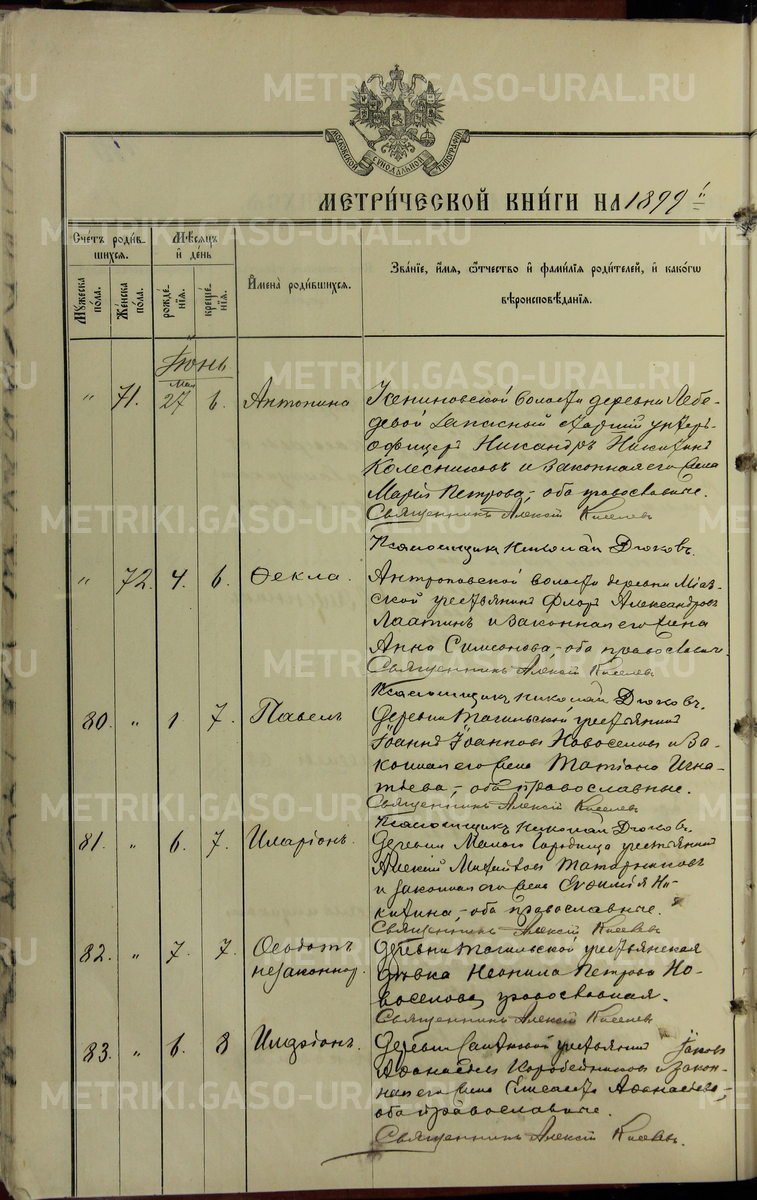 METRIKI.GASO-URAL.RU
МОСКОВСКОЙ СѴНОДАЛЬНОЙ ТИПОГРАФІИ
МЕТРИ́ЧЕСКОЙ КНИ́ГИ НА 1899
Сче́тъ роди́в-
шихся.
Мꙋ́жеска по́ла.
Же́нска по́ла.
Мѣ́сяцъ
и҆ де́нь
рожде́нїѧ.
креще́нїѧ.
И҆мена̀ роди́вшихся.
Зва́нїе, и҆́мѧ, ѻ҆́тчество и҆ фами́лїѧ роди́телей, и҆ како́гѡ
вѣроисповѣ́данїѧ.
Іюнь
Мая
" 71. 27 6. Антонина
деревни Лебе-
девой запасный старшій унтеръ-
офицеръ Никандръ Никитинъ
Колесниковъ и законная его жена
Марія Петрова, оба православные.
Священникъ Алексій Киселевъ
Псаломщикъ Николай
" 72. 4. 6. Ѳекла.
Антроповской волости деревни
крестьянинъ Флоръ Александровъ
и законная его жена
Анна Симонова, оба православные.
Священникъ Алексій Киселевъ
Псаломщикъ Николай
80. " 1 7. Павелъ
Деревни Тагильской крестьянинъ
Іоаннъ Іоанновъ Новоселовъ и за-
конная его жена Татіана Игна-
тьева, оба православные.
Священникъ Алексій Киселевъ
Псаломщикъ Николай
81. " 6. 7. Иларіонъ.
Деревни Малаго Городища крестьянинъ
Алексій Татарниковъ
и законная его жена Евѳимія Ни-
китина, оба православные.
Священникъ Алексій Киселевъ
82. " 7. 7. Ѳеодотъ
незаконнор.
Деревни Тагильской крестьянская
дѣвка Неонила Петрова Но-
воселова, православная.
Священникъ Алексій Киселевъ
83. " 6. 8
Деревни крестьянинъ Іаковъ
Аѳанасьевъ Коробейниковъ и закон-
ная его жена Аѳанасьева,
оба православные.
Священникъ Алексій Киселевъ.